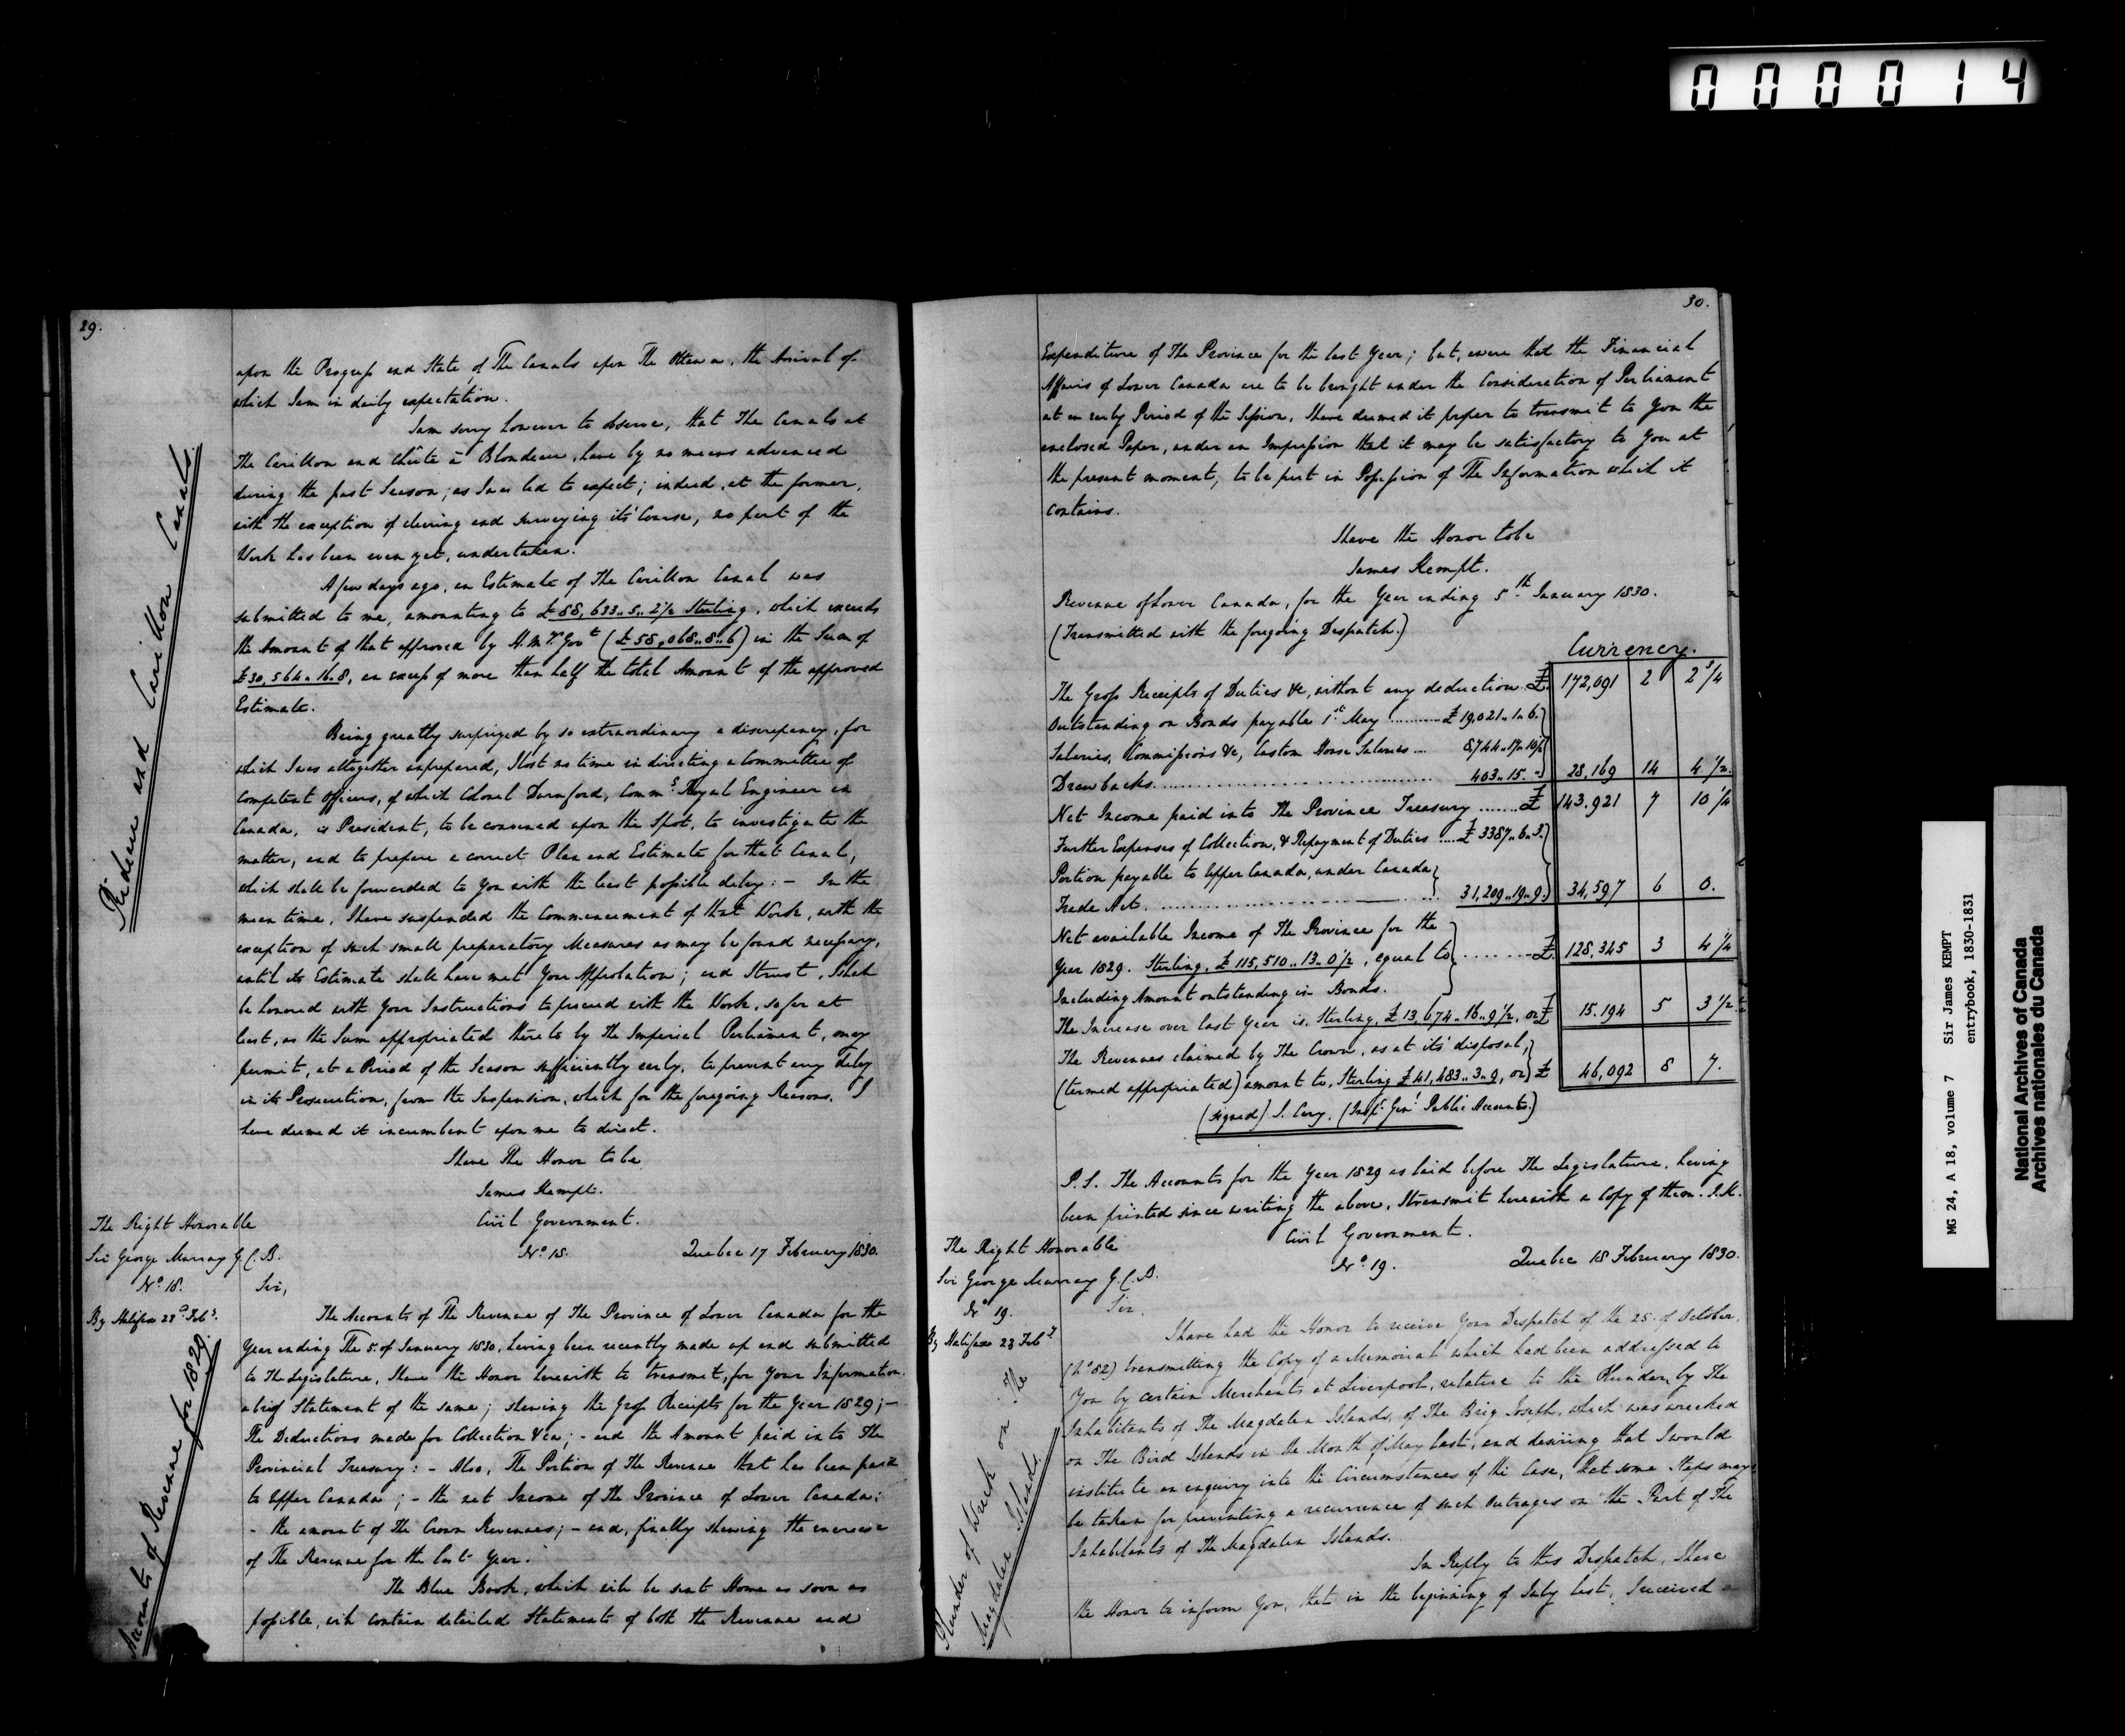 000014
29.
upon the Progress and State of The Canals upon The Ottawa, the Arrival of
which I am in daily expectation.
I am sorry however to observe, that The Canals at
The Carillon and Chûte à Blondeau, have by no means advanced
during the past Season, as I was led to expect; indeed, at the former,
with the exception of clearing and surveying its' Course, no part of the
Work has been even yet, undertaken.
A few days ago, an Estimate of The Carillon Canal was
submitted to me, amounting to £88,633..5..2½ Sterling, which exceeds
the Amount of that approved by H.M's Govt (£58,068..8..6) in the Sum of
£30,564..16..8, an excess of more than half the total Amount of the approved
Estimate.
Being greatly surprized by so extraordinary a discrepancy, for
which I was altogether unprepared, I lost no time in directing a Committee of
Competent Officers, of which Colonel Durnford, Commg Royal Engineer in
Canada, is President, to be convened upon the Spot, to investigate the
matter, and to prepare a correct Plan and Estimate for that Canal,
which shall be forwarded to you with the least possible delay: – In the
mean time, I have suspended the Commencement of that Work, with the
exception of such small preparatory Measures as may be found necessary,
until its Estimate shall have met Your Approbation; and I trust, I shall
be honored with Your Instructions to proceed with the Work, so far at
least, as the Sum appropriated thereto by the Imperial Parliament, may
permit, at a Period of the Season sufficiently early, to prevent any delay
in its Prosecution, from the Suspension, which for the foregoing Reasons, I
have deemed it incumbent upon me to direct.
I have The Honor to be
James Kempt.
Rideau and Carillon Canals.
The Right Honorable
Sir George Murray G.C.B.
No 18.
By Halifax 23d Feby.
Civil Government.
No 18. Quebec 17 February 1830.
Sir,
The Accounts of The Revenue of The Province of Lower Canada for the
Year ending The 5. of January 1830, having been recently made up and submitted
to The Legislature, I have the Honor herewith to transmit, for Your Information,
a brief Statement of the same; shewing the Gross Receipts for the Year 1829; –
The Deductions made for Collection &ca; – and the Amount paid into The
Provincial Treasury: – Also, The Portion of The Revenue that has been paid
to Upper Canada; – the net Income of The Province of Lower Canada;
– the amount of The Crown Revenues; – and, finally shewing the increase
of The Revenue for the last Year.
The Blue Book, which will be sent Home as soon as
possible, will contain detailed Statements of both the Revenue and
Accounts of Revenue for 1829.
30.
Expenditure of The Province for the last Year; but, aware that the Financial
Affairs of Lower Canada are to be brought under the Consideration of Parliament
at an early Period of the Session, I have deemed it proper to transmit to You the
enclosed Paper, under an Impression that it may be satisfactory to You at
the present moment, to be put in Possession of The Information which it
contains.
I have the Honor to be
James Kempt.
Revenue of Lower Canada, for the Year ending 5th January 1830.
(Transmitted with the foregoing Despatch.)
Currency.
The Gross Receipts of Duties &c, without any deduction £ 172,091 2 2¾
Outstanding on Bonds payable 1st May .......... £19,021..1..6.
Salaries, Commissions &c, Custom House Salaries ... 8744..17..10½
Drawbacks .......... 403..15..- 28,169 14 4½.
Net Income paid into The Province Treasury ....... £ 143,921 7 10¼
Further Expenses of Collection, & Repayment of Duties .... £3387..6..3.
Portion payable to Upper Canada, under Canada
Trade Act .......... 31,209..19..9. 34,597 6 0.
Net available Income of The Province for the
Year 1829. Sterling, £115,510..13..0½, equal to ........ £ 128,345 3 4¼
Including Amount outstanding in Bonds.
The Increase over last Year is, Sterling, £13,674..16..9½, or £ 15.194 5 3½.
The Revenues claimed by The Crown, as at its' disposal,
(termed appropriated) amount to, Sterling £41,483..3..9, or £ 46,092 8 7.
(signed) J. Cary. (Inspr Genl Public Accounts.)
P.S. The Accounts for the Year 1829 as laid before The Legislature, having
been printed since writing the above, I transmit herewith a Copy of them. J.K.
The Right Honorable
Sir George Murray G.C.B.
No 19.
By Halifax 23 Feby
Civil Government.
No 19. Quebec 18 February 1830.
Sir,
I have had the Honor to receive Your Despatch of the 25. of October,
(No 82) transmitting the Copy of a Memorial which had been addressed to
You by certain Merchants at Liverpool, relative to the Plunder, by The
Inhabitants of The Magdalen Islands, of The Brig Joseph, which was wrecked
on The Bird Islands in the Month of May last, and desiring that I would
institute an enquiry into the Circumstances of the Case, that some Steps may
be taken for preventing a recurrence of such Outrages on the Part of The
Inhabitants of The Magdalen Islands.
In Reply to this Despatch, I have
the Honor to inform You, that in the beginning of July last, I received a
Plunder of Wreck on The
Magdalen Islands.
MG 24, A 18, volume 7 Sir James KEMPT
entrybook, 1830-1831
National Archives of Canada
Archives nationales du Canada